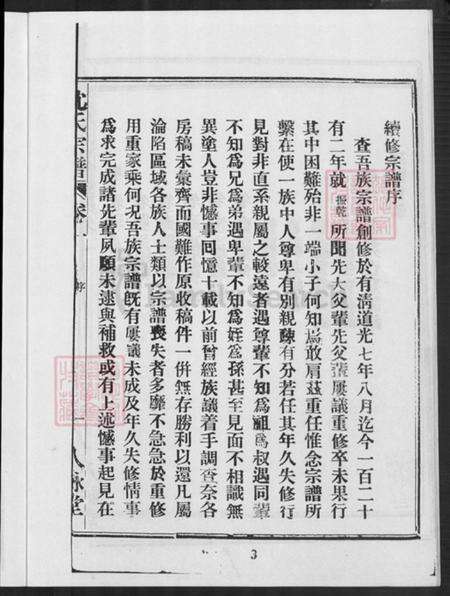 續修宗譜序
查吾族宗譜創修於有淸道光七年八月迄今一百二十
有二年就振乾所聞先大父輩先父輩屢議重修卒未果行
其中困難殆非一端小子何知焉敢肩茲重任惟念宗譜所
繫在使一族中人尊卑有別親疎有分若任其年久失修行
見對非直系親屬之較遠者遇尊輩不知爲祖爲叔遇同輩
不知爲兄爲弟遇卑輩不知爲姪爲孫甚至見面不相識無
異塗人豈非憾事回憶十載以前曾經族議着手調查奈各
房稿未彙齊而國難作原收稿件一倂無存勝利以還凡屬
淪陷區域各族人士類以宗譜喪失者多靡不急急於重修
用重家乘何况吾族宗譜旣有屢議未成及年久失修情事
爲求完成諸先輩夙願未逮與補救或有上述憾事起見在
沈氏宗譜
卷
序
八詠堂
3